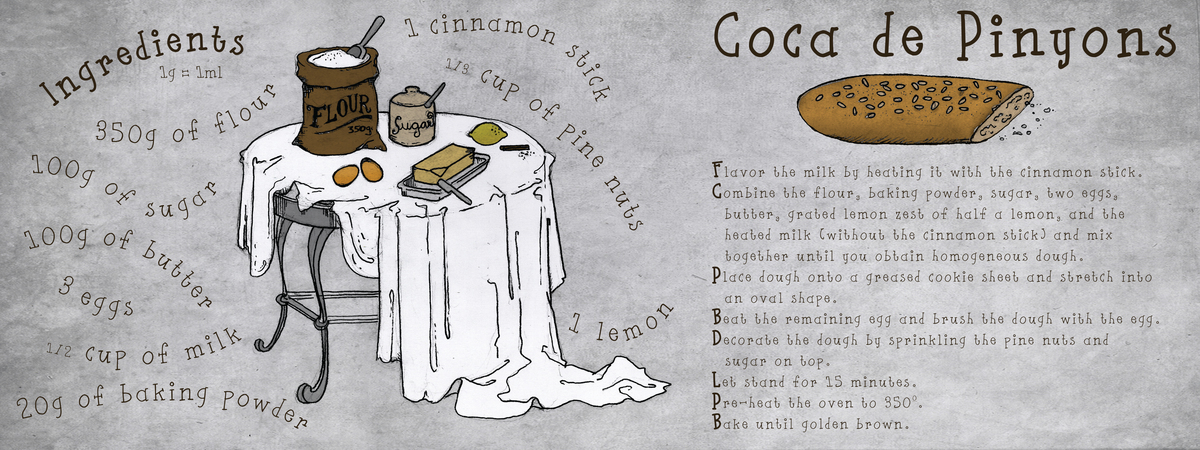 Ingredients
1g = 1ml
350g of flour
100g of sugar
100g of butter
3 eggs
1/2 cup of milk
20g of baking powder
1 cinnamon stick
1/3 cup of pine nuts
1 lemon
FLOUR
350g
Sugar
Coca de Pinyons
Flavor the milk by heating it with the cinnamon stick.
Combine the flour, baking powder, sugar, two eggs,
butter, grated lemon zest of half a lemon, and the
heated milk (without the cinnamon stick) and mix
together until you obtain homogeneous dough.
Place dough onto a greased cookie sheet and stretch into
an oval shape.
Beat the remaining egg and brush the dough with the egg.
Decorate the dough by sprinkling the pine nuts and
sugar on top.
Let stand for 15 minutes.
Pre-heat the oven to 350°.
Bake until golden brown.